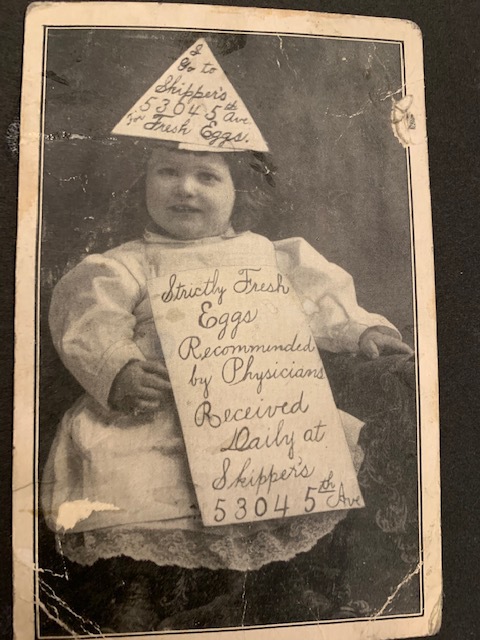 I
Go to
Skipper's
5304 5th Ave
for Fresh Eggs.
Strictly Fresh
Eggs
Recommended
by Physicians
Received
Daily at
Skipper's
5304 5th Ave